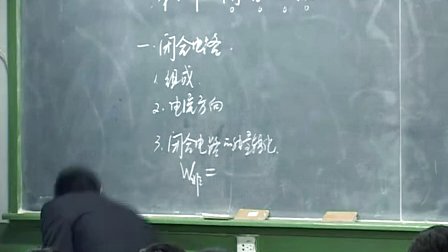 一.闭合电路.
1.组成.
2.电流方向
3.闭合电路的能量转化.
W非=